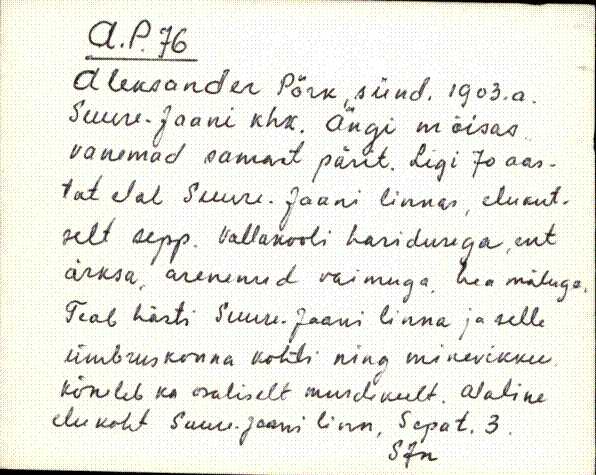 A.P. 76
Aleksander Põrk, sünd. 1903.a.
Suure-Jaani khk. Ängi mõisas
vanemad samast pärit. Ligi 70 aas-
tat elab Suure-Jaani linnas, elukut-
selt sepp. Vallakooli haridusega, ent
ärksa, arenenud vaimuga, hea mäluga.
Teab hästi Suure-Jaani linna ja selle
ümbruskonna kohti ning minevikku.
Kõneleb ka osaliselt murdekeelt. Alaline
elukoht Suure-Jaani linn, Sepa t. 3.